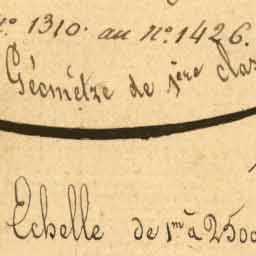 N.º 1310. au N.º 1426.
Géomètre de 1ère clas
Echelle de 1m à 2500